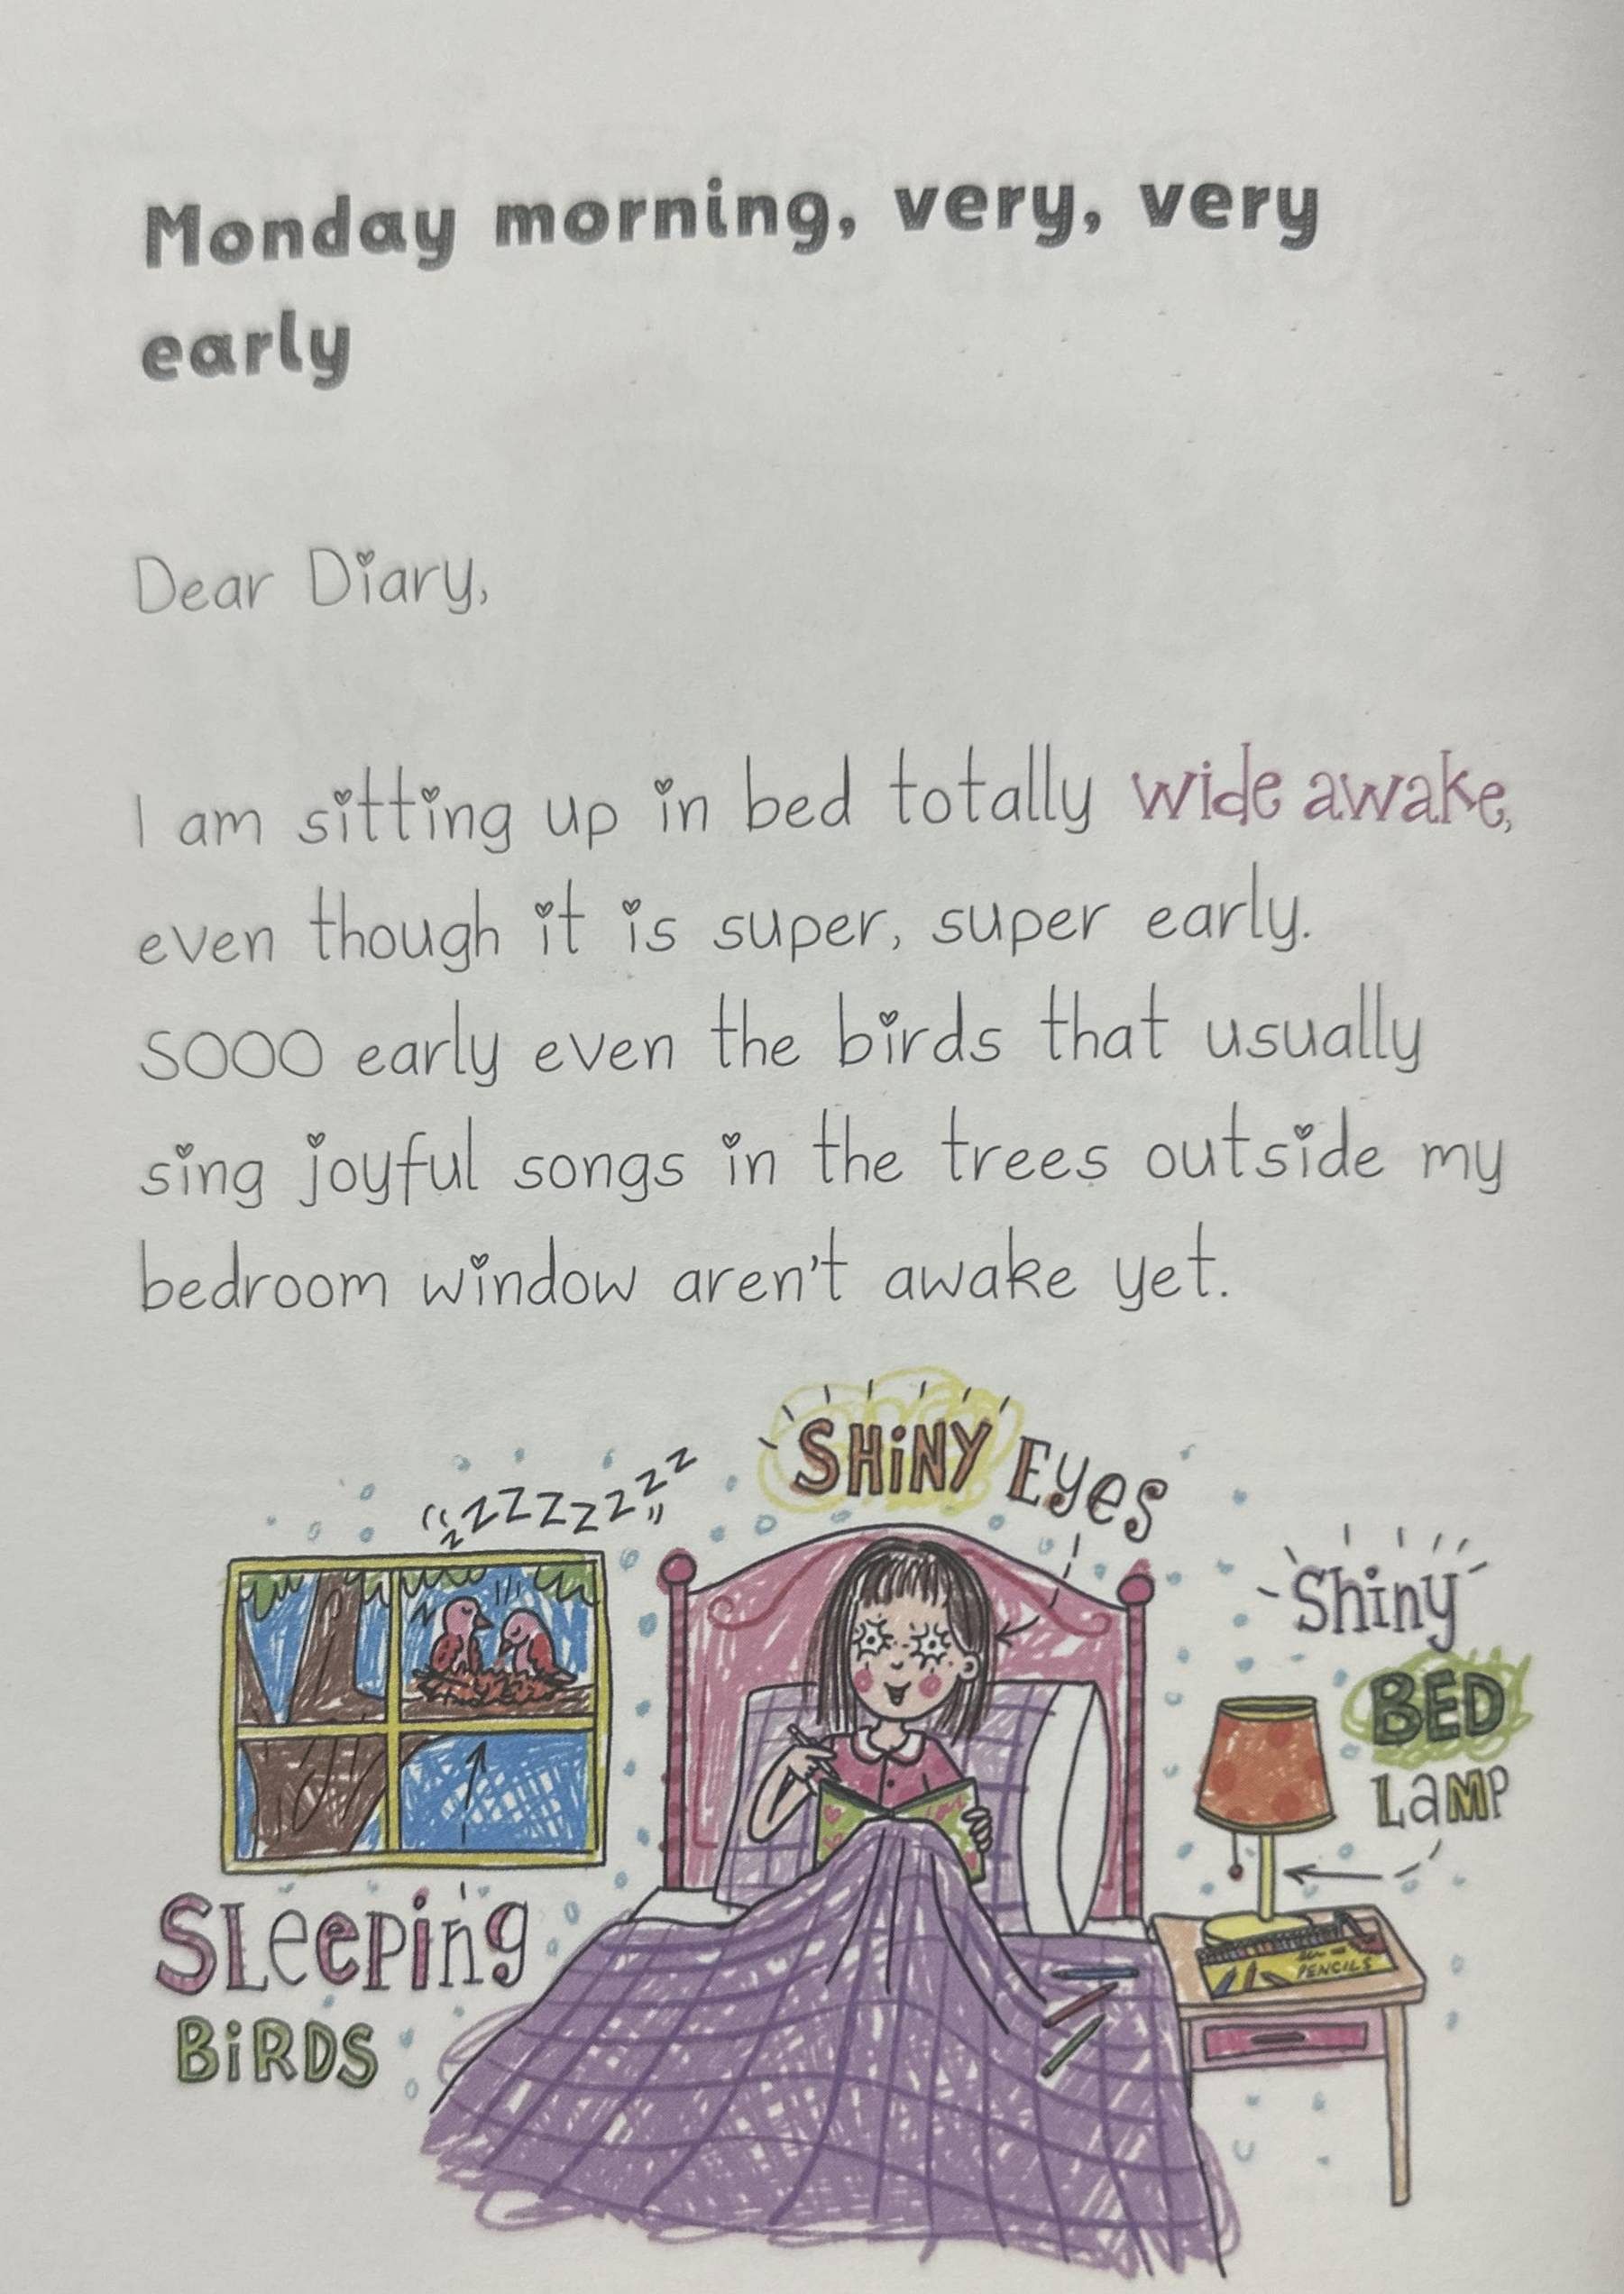 Monday morning, very, very
early
Dear Diary,
I am sitting up in bed totally wide awake,
even though it is super, super early.
SOOO early even the birds that usually
sing joyful songs in the trees outside my
bedroom window aren't awake yet.
SHiNY Eyes
zZZZZZZZZ
Shiny
BED
LaMP
SLeePing
BiRDS
PENCILS